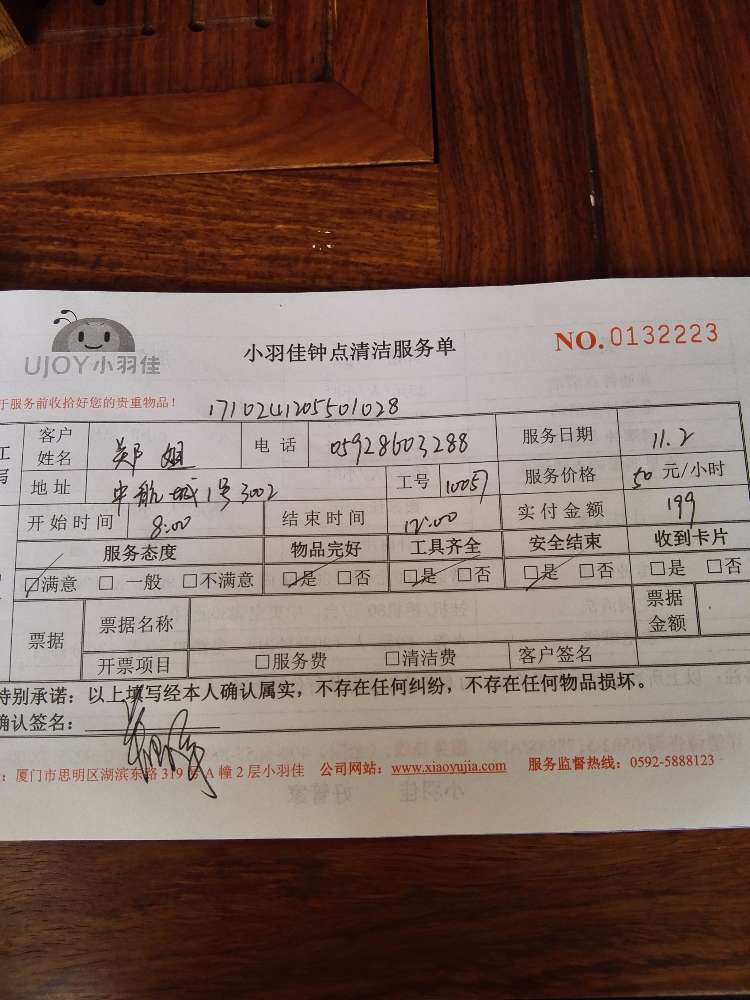 UJOY小羽佳
小羽佳钟点清洁服务单
NO.0132223
于服务前收拾好您的贵重物品！
1710241205501028
客户姓名 郑姐 电话 05928603288 服务日期 11.2
地址 中航城1号3002 工号 10057 服务价格 50元/小时
开始时间 8:00 结束时间 12:00 实付金额 199
服务态度 物品完好 工具齐全 安全结束 收到卡片
☑满意 □一般 □不满意 ☑是 □否 ☑是 □否 ☑是 □否 □是 □否
票据 票据名称 票据金额
开票项目 □服务费 □清洁费 客户签名
特别承诺：以上填写经本人确认属实，不存在任何纠纷，不存在任何物品损坏。
确认签名：
：厦门市思明区湖滨东路319号A幢2层小羽佳 公司网站：www.xiaoyujia.com 服务监督热线：0592-5888123